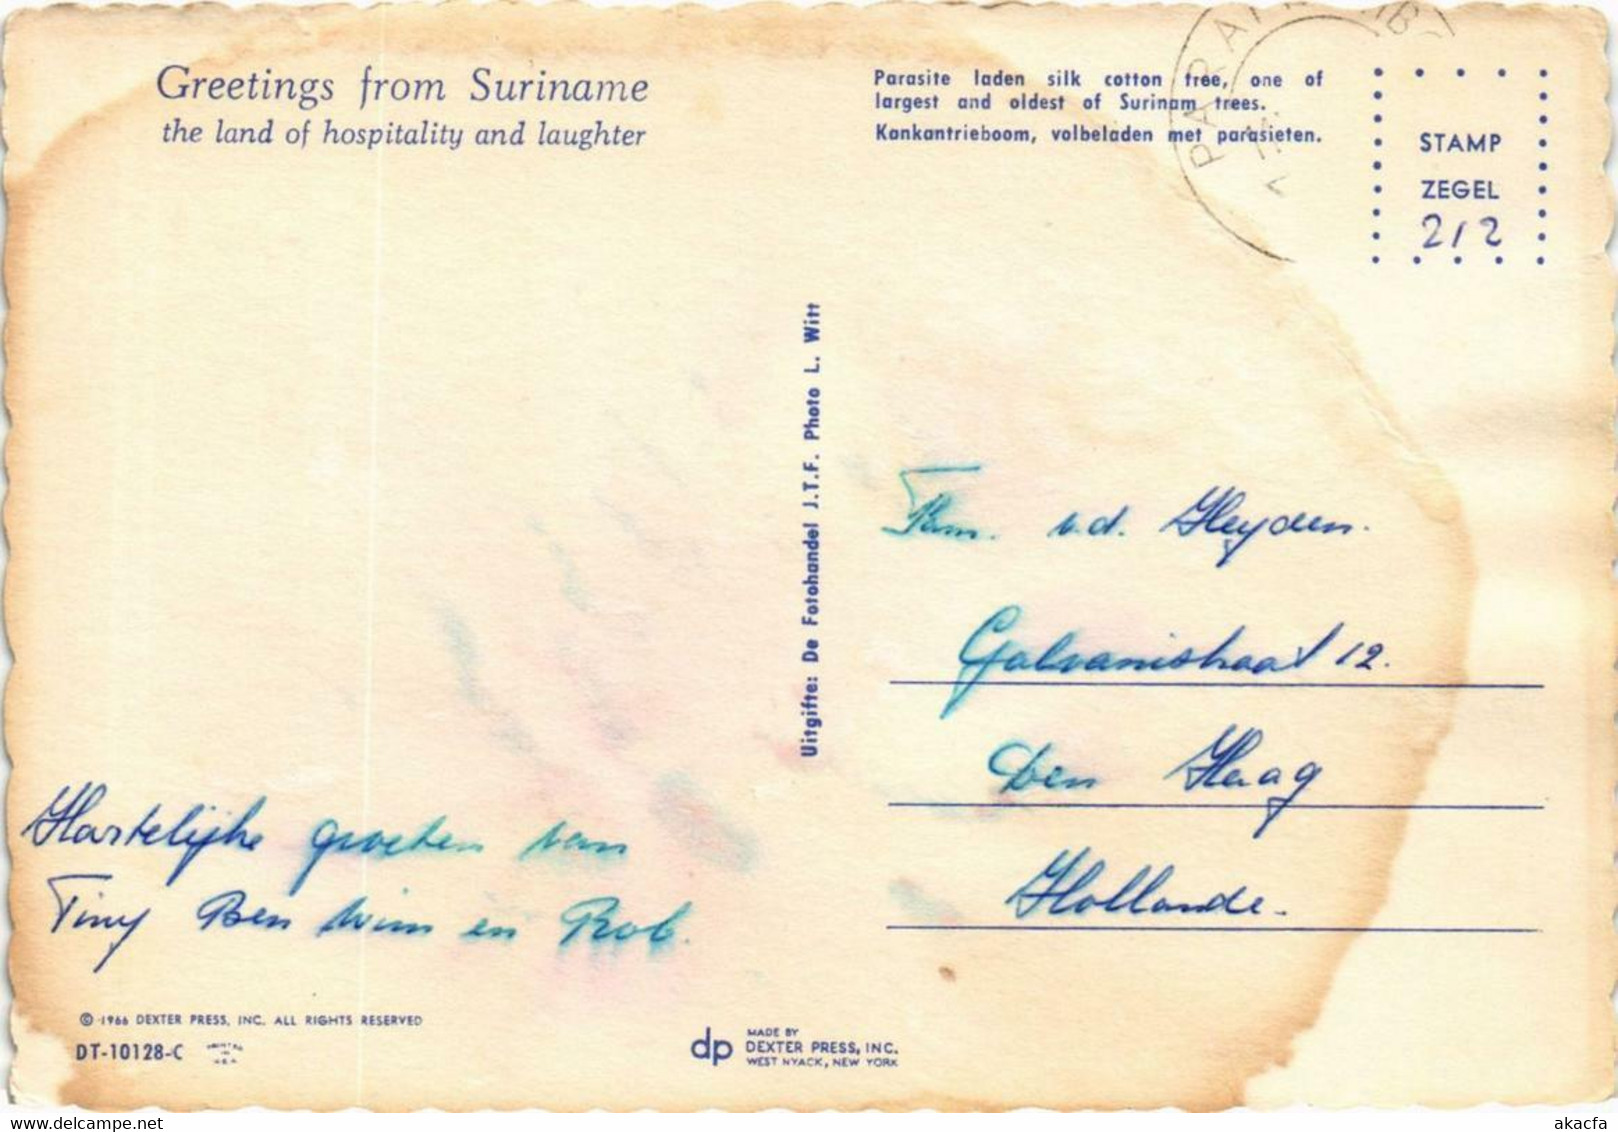 Greetings from Suriname
the land of hospitality and laughter
Parasite laden silk cotton tree, one of
largest and oldest of Surinam trees.
Kankantrieboom, volbeladen met parasieten.
STAMP
ZEGEL
212
Uitgifte: De Fotohandel J.T.F. Photo L. Witt
Fam. v.d. Heyden.
Galvanistraat 12.
Den Haag
Hollande.
Hartelijke groeten van
Tiny Ben Wim en Rob.
© 1966 DEXTER PRESS, INC. ALL RIGHTS RESERVED
DT-10128-C
PRINTED
IN
U.S.A.
dp
MADE BY
DEXTER PRESS, INC.
WEST NYACK, NEW YORK
delcampe.net
akacfa